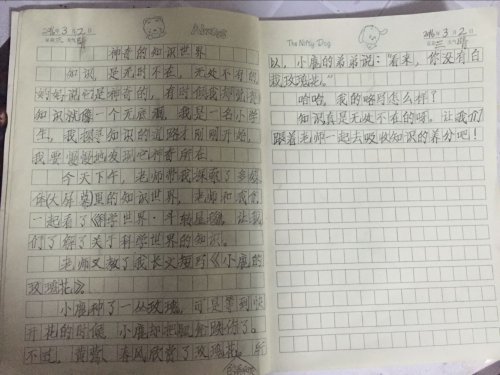 2016年3月2日
星期三 天气晴
神奇的知识世界
知识是无时不在，无处不有的，
妈妈说它是神奇的，有时候我却觉得
知识就像一个无底洞。我是一名小学
生，我探求知识的道路才刚刚开始，
我要慢慢地发现它神奇所在。
今天下午，老师带我探索了多媒
体(大屏幕)里的知识世界。老师和我们
一起看了《科学世界·》让我
们了解了关于科学世界的知识。
老师又教了我长文短巧《小鹿的
玫瑰花》。
小鹿种了一丛玫瑰，可是等到快
开花的时候，小鹿却把腿给跌伤了。
不过，黄莺、春风欣赏了玫瑰花。所
The Nifty Dog
2016年3月2日
星期三 天气晴
以，小鹿的弟弟说：“看来，你没有白
栽玫瑰花。”
哈哈，我的略写怎么样？
知识真是无处不有的呀。让我们
跟着老师一起去吸收知识的养分吧！